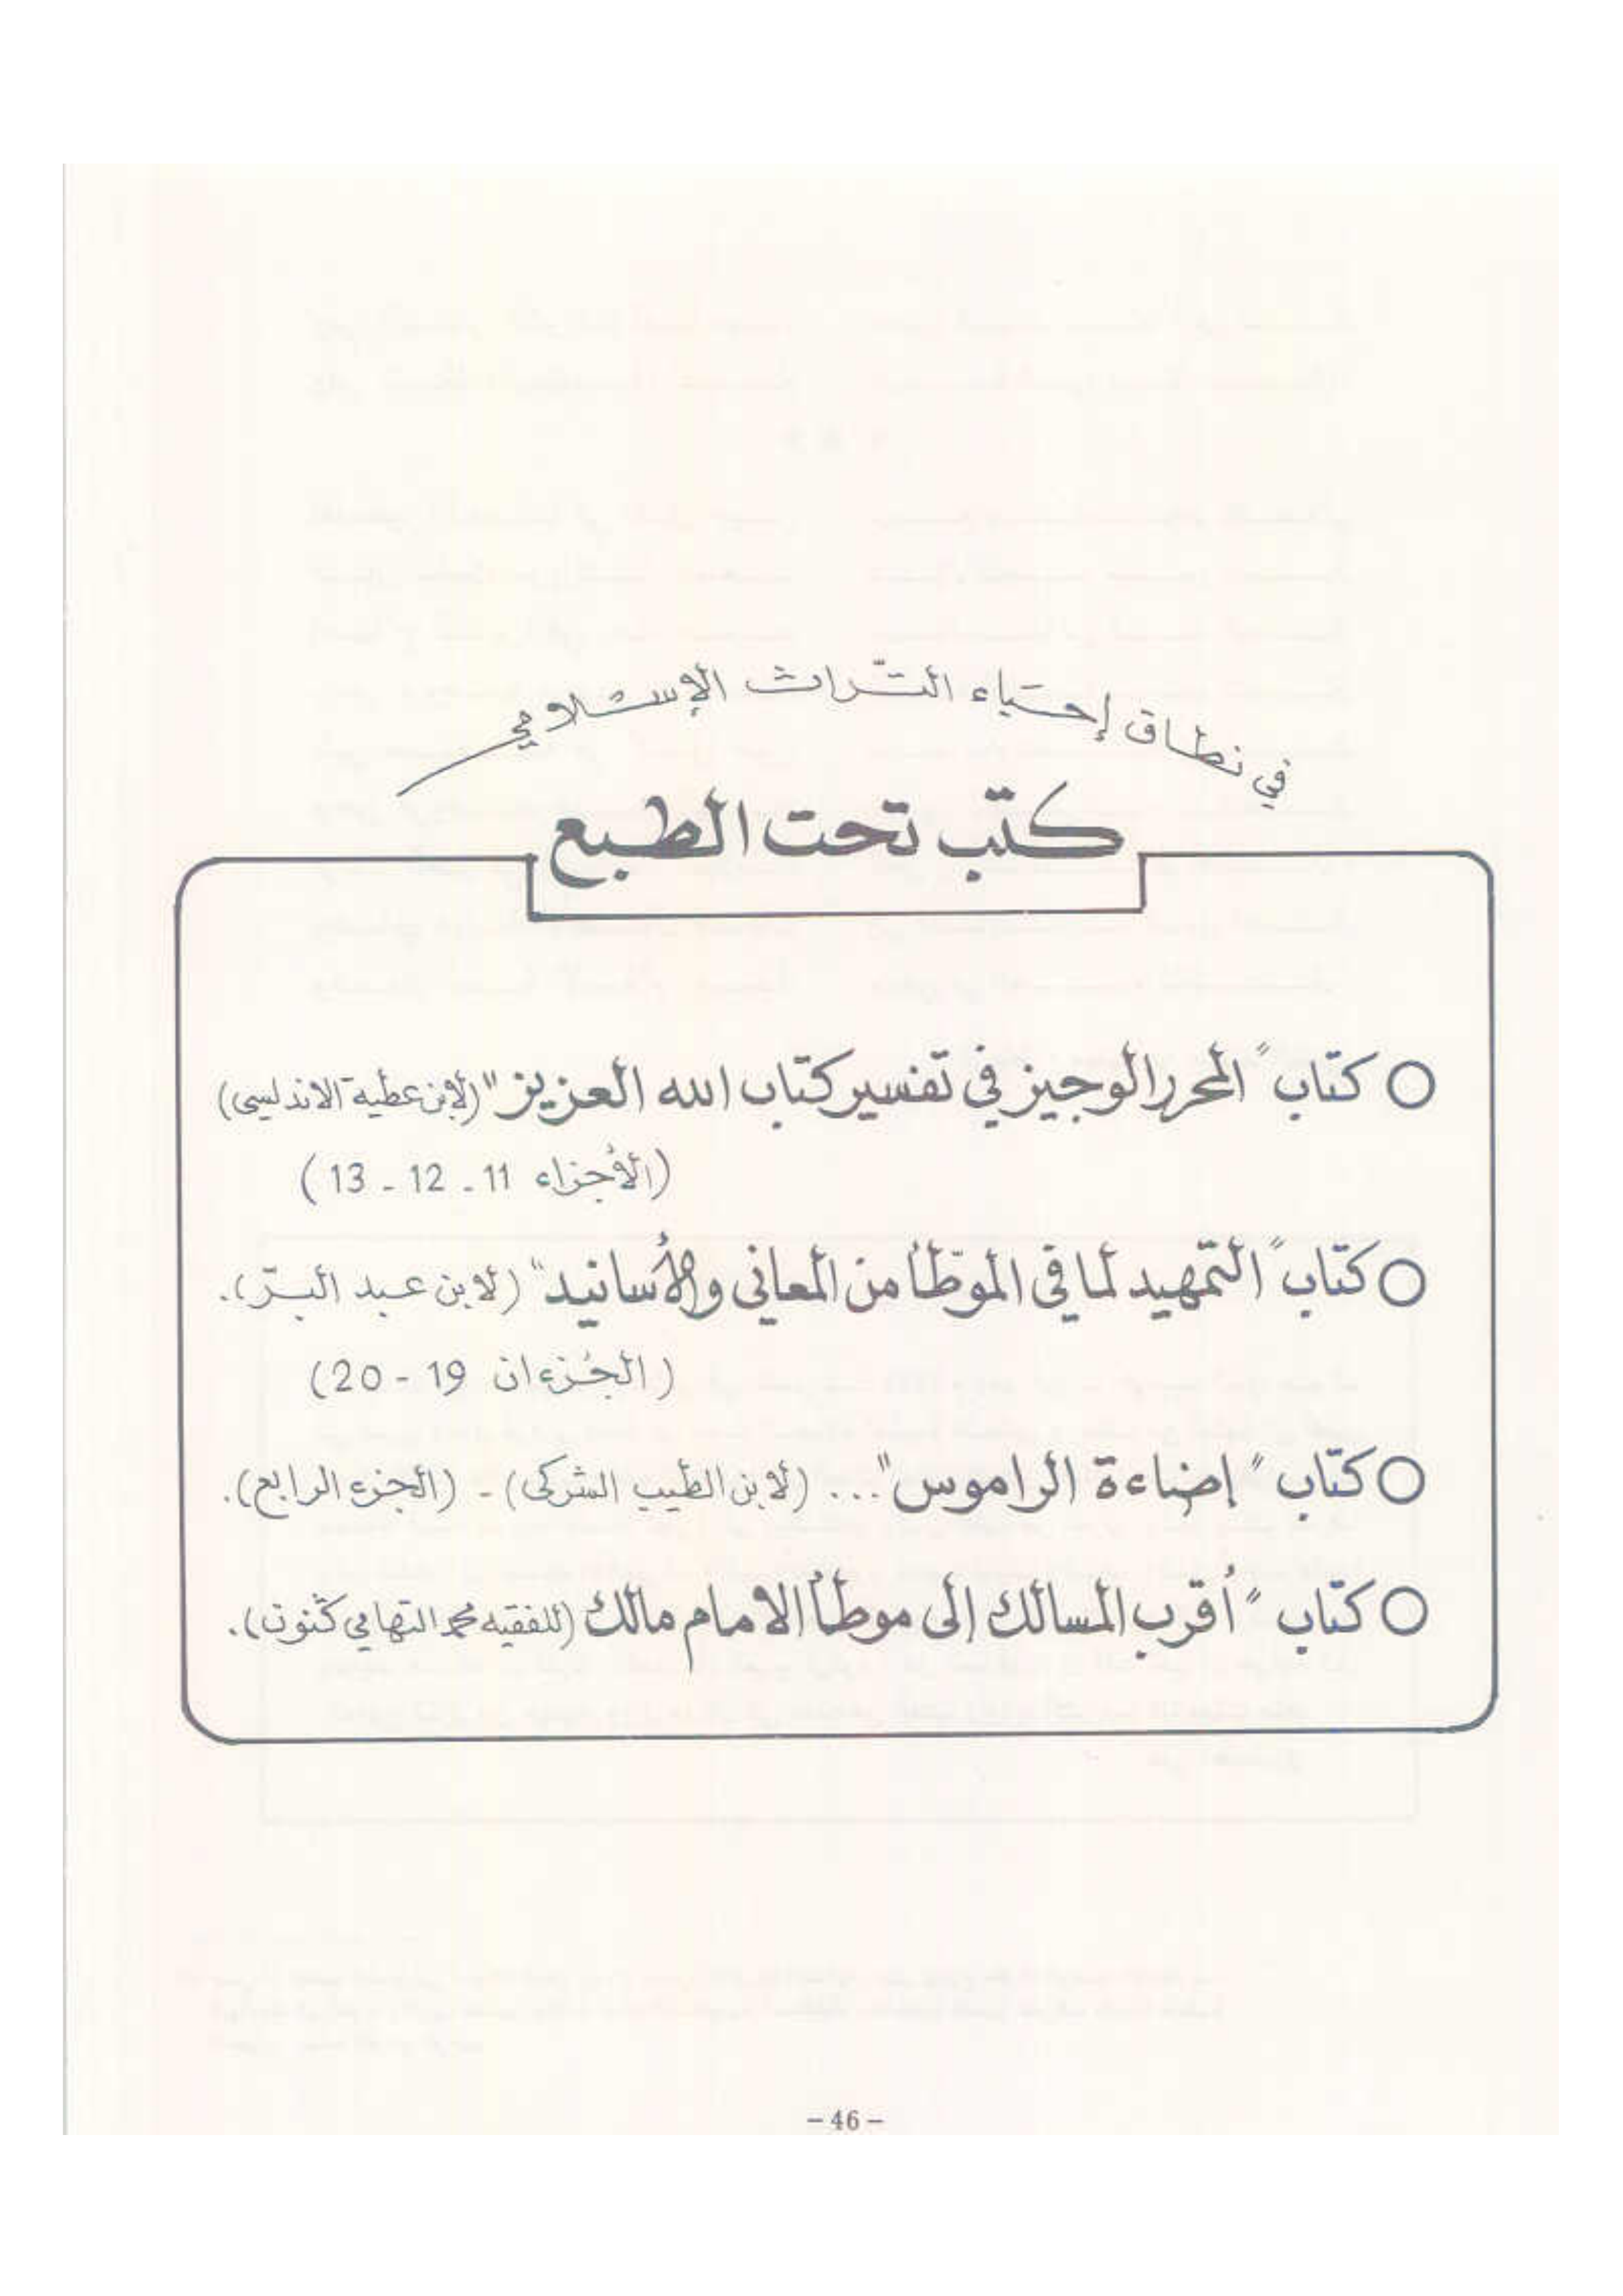 في نطاق إحياء التّراث الإسلامي
كتب تحت الطبع
○ كتاب "المحرر الوجيز في تفسير كتاب الله العزيز" (لابن عطية الاندلسي)
(الأجزاء 11 - 12 - 13)
○ كتاب "التمهيد لما في الموطّأ من المعاني والأسانيد" (لابن عبد البرّ).
(الجزءان 19 - 20)
○ كتاب "إضاءة الراموس"... (لابن الطيب الشركي) - (الجزء الرابع).
○ كتاب "أقرب المسالك إلى موطأ الامام مالك (للفقيه محمد التهامي كنون).
- 46 -